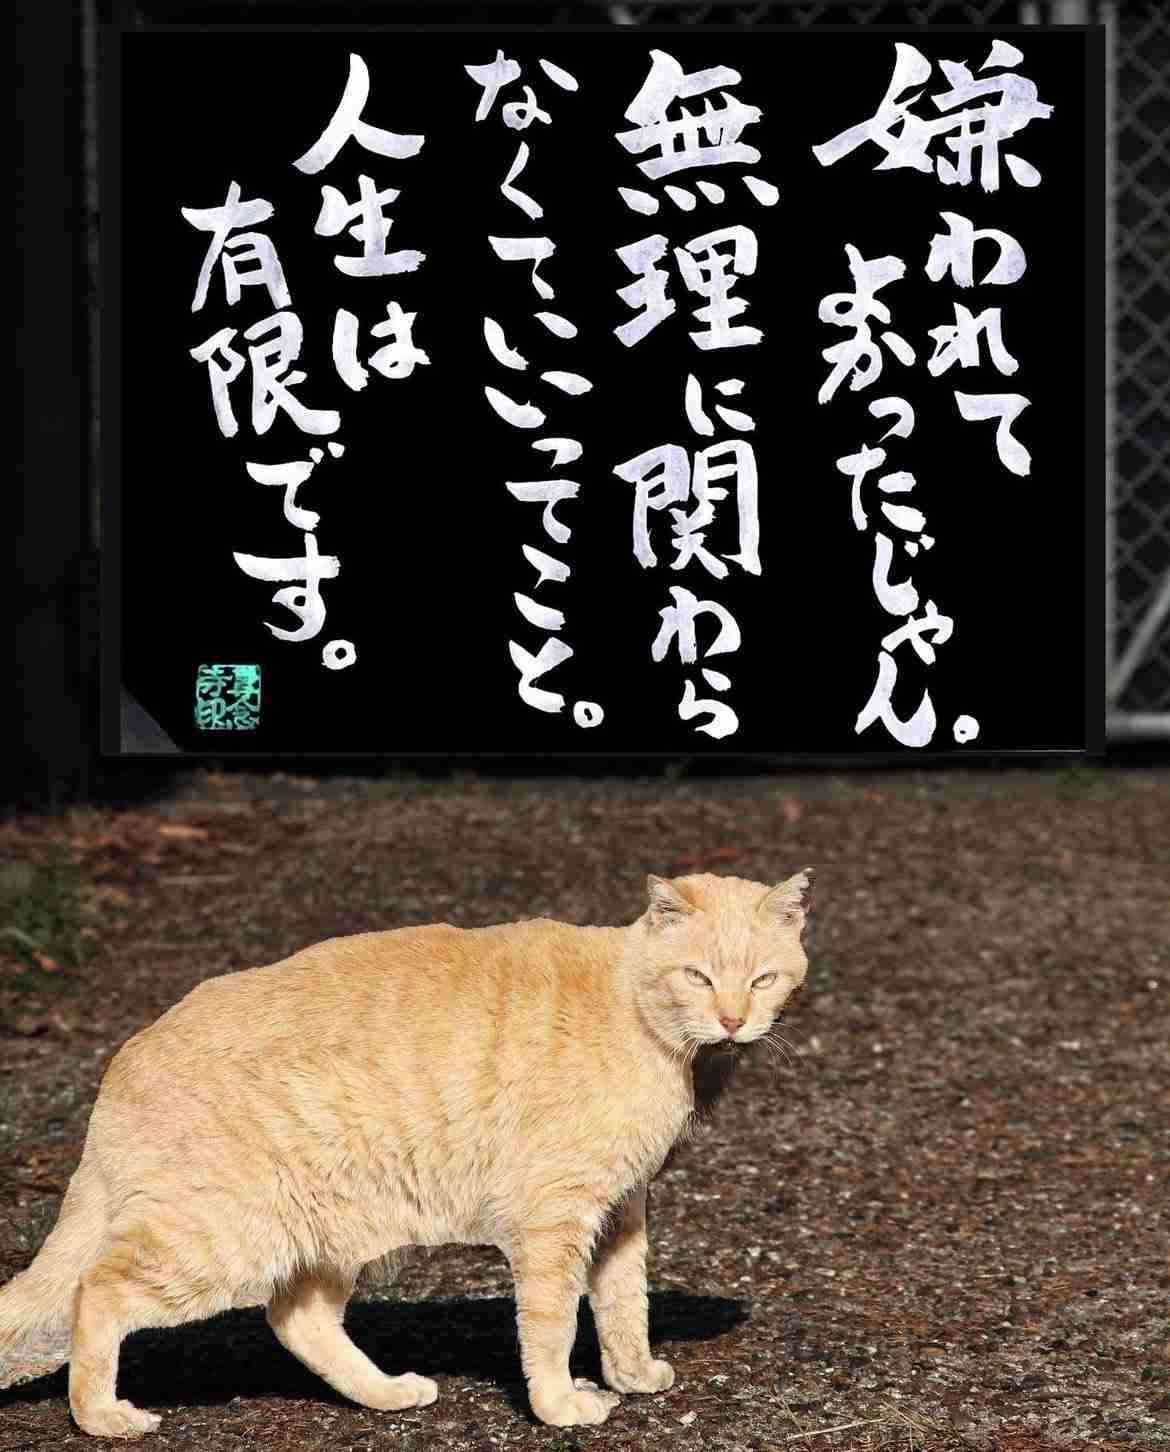 嫌われて
よかったじゃん。
無理に関わら
なくていいってこと。
人生は
有限です。